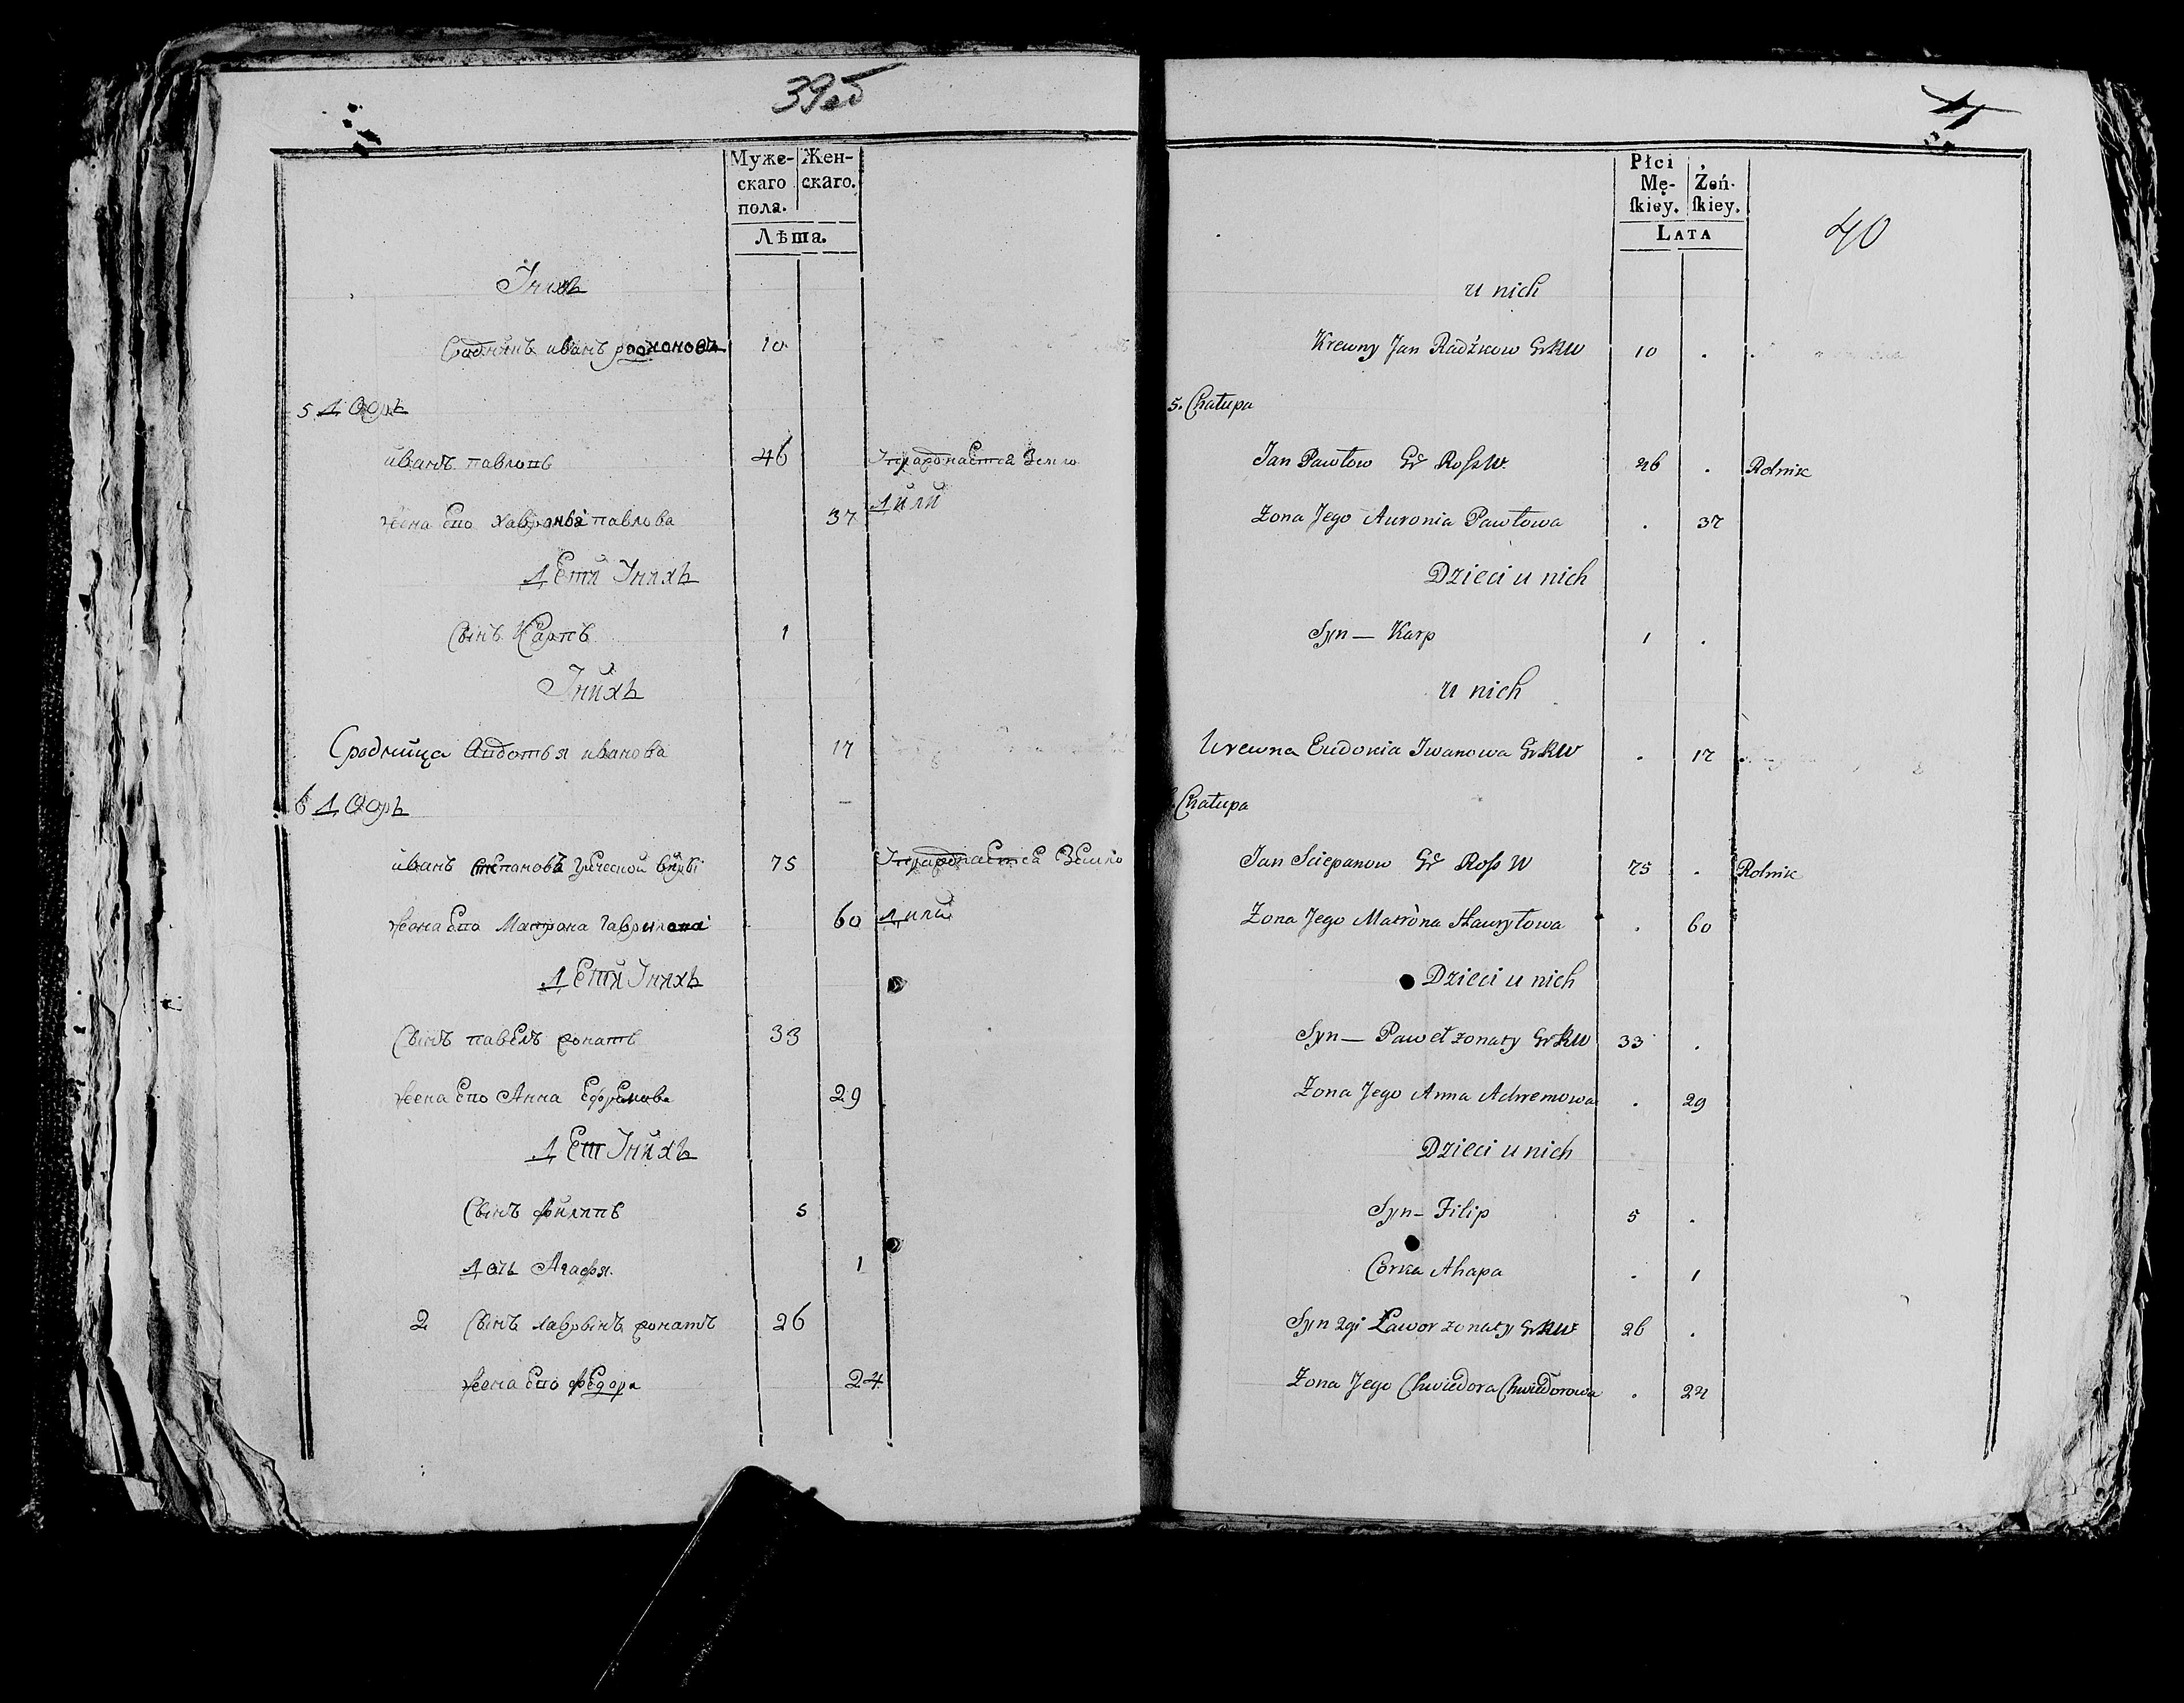 39об
Муже- Жен-
скаго скаго.
пола.
Лѣта.
Унихъ
Сродникъ иванъ 10
5 Дворъ
иванъ павловъ 46 Упражняется Земле
жена Его Хавронья павлова 37 Дилий
Дети Унихъ
Сынъ Карпъ 1
Унихъ
Сродница Авдотья иванова 17
6 Дворъ
иванъ степановъ греческой веры 75 Упражняется Земле
жена Его Матрона Гаврилова 60 Дилий
Дети Унихъ
Сынъ павелъ женатъ 33
жена Его Анна Ефремова 29
Дет Унихъ
Сынъ филипъ 5
Дочь Агафя 1
2 Сынъ лаврынъ женатъ 26
жена Его федора 24
Płci
Mę- Żeń-
ſkiey. ſkiey.
LATA
40
u nich
Krewny Jan Radźkow GrRW 10 .
5. Chałupa
Jan Pawłow Gr RossW. 46 . Rolnik
Żona Jego Auronia Pawłowa . 37
Dzieci u nich
Syn — Karp 1 .
u nich
Krewna Eudokia Iwanowa GrRW . 17
Chałupa
Jan Sciepanow Gr Ross W 75 . Rolnik
Żona Jego Matrona Hauryłowa . 60
Dzieci u nich
Syn — Paweł żonaty GrRW 33 .
Żona Jego Anna Achremowa . 29
Dzieci u nich
Syn — Filip 5 .
Corka Ahapa . 1
Syn 2gi Ławor żonaty GrRW 26 .
Żona Jego Chwiedora Chwiedorowa . 24